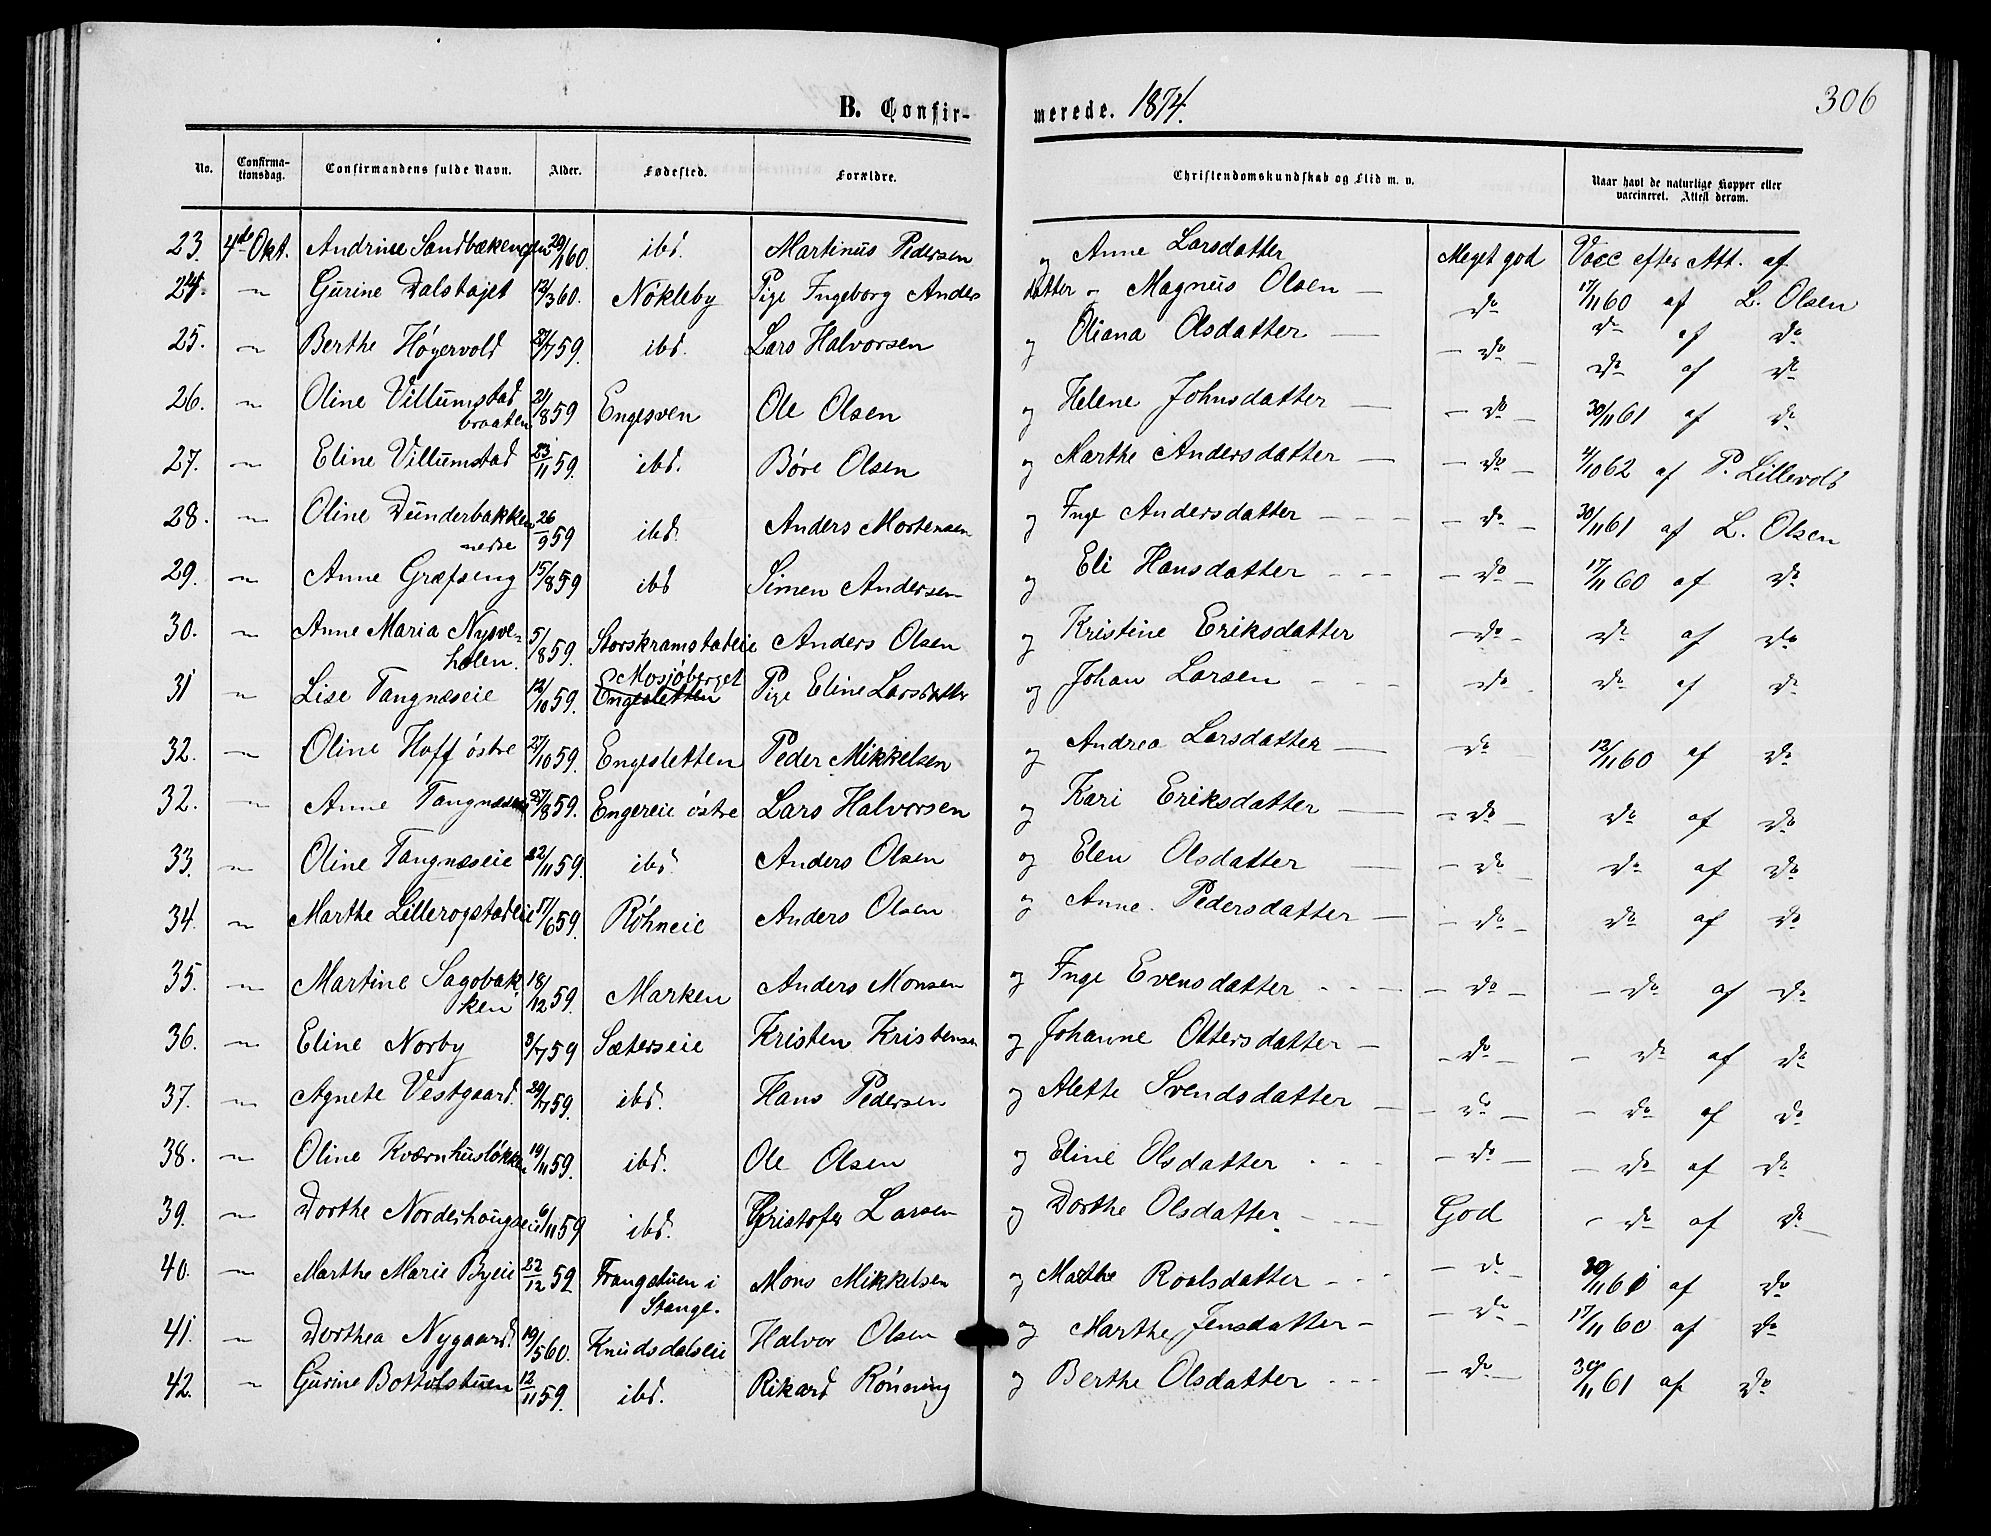 B. Confir- merede. 1874. 306
No. Confirma-tionsdag. Confirmandens fulde Navn. Alder. Fødested. Forældre. Christendomskundskab og Flid m. v. Naar havt de naturlige Kopper eller vaccineret. Attest derom.
23. 4de Okt. Andrine Sandbækengen 29/1 60. ibd. Martinus Pedersen og Anne Larsdatter Meget god Vacc efter Att. af
24. " Gurine Dalstøjet 12/3 60. Nökleby Pige Ingeborg Anders datter og Magnus Olsen — do 17/11 60 af L. Olsen
25. " Berthe Høyervold 27/7 59. ibd. Lars Halvorsen og Oliana Olsdatter — do do af do
do af do
26. " Oline Villumstad braaten 21/8 59 Engesveen Ole Olsen og Helene Johnsdatter — do — 30/11 61 af do
27. " Eline Villumstad 23/11 59. ibd. Børe Olsen og Marthe Andersdatter — do — 4/10 62 af P. Lillevold
28. " Oline Dunderbakken nedre 26/9 59 ibd. Anders Mortensen og Inge Andersdatter — do — 30/11 61 af L. Olsen
29. " Anne Græfseng 15/8 59 ibd Simen Andersen og Eli Hansdatter — do — 17/11 60 af do
30. " Anne Maria Nysve- holen. 5/8 59. Storskramstadeie Anders Olsen og Kristine Eriksdatter — do — do af do
31 " Lise Tangnæseie 12/10 59. Mosjøberget Engesletten Pige Eline Larsdatter og Johan Larsen — do — do af do
32. " Oline Hoff östre 27/10 59. Engesletten Peder Mikkelsen og Andrea Larsdatter — do — 12/11 60 af do
32. " Anne Tangnæseie 27/8 59. Engereie östre Lars Halvorsen og Kari Eriksdatter — do — do af do
33. " Oline Tangnæseie 22/11 59. ibd. Anders Olsen og Elen Olsdatter — do — do af do
34. " Marthe Lillerogstadeie 17/6 59. Röhneie Anders Olsen og Anne Pedersdatter — do — do af do
35. " Martine Sagobak ken 18/12 59. Marken Anders Monsen og Inge Evensdatter — do — do af do
36. " Eline Norby 3/7 59 Sæterseie Kristen Kristensen og Johanne Ottersdatter — do — do af do
37. " Agnete Vestgaard. 29/7 59. ibd. Hans Pedersen og Alette Svendsdatter — do — do af do
38. " Oline Kværnhusløkken 19/11 59. ibd. Ole Olsen og Eline Olsdatter — do — do af do
39. " Dorthe Norderhougseie 6/11 59 ibd. Kristofer Larsen og Dorthe Olsdatter God do af do
40. " Marthe Marie Byeie 22/12 59 Frangstuen i Stange. Mons Mikkelsen og Marthe Roalsdatter — do — 30/11 61 af do
41. " Dorthea Nygaard. 19/5 60. Knudsdalseie Halvor Olsen og Marthe Jensdatter — do — 17/11 60 af do
42. " Gurine Bottolstuen 12/11 59. ibd. Rikard Rönning og Berthe Olsdatter — do — 30/11 61 af do